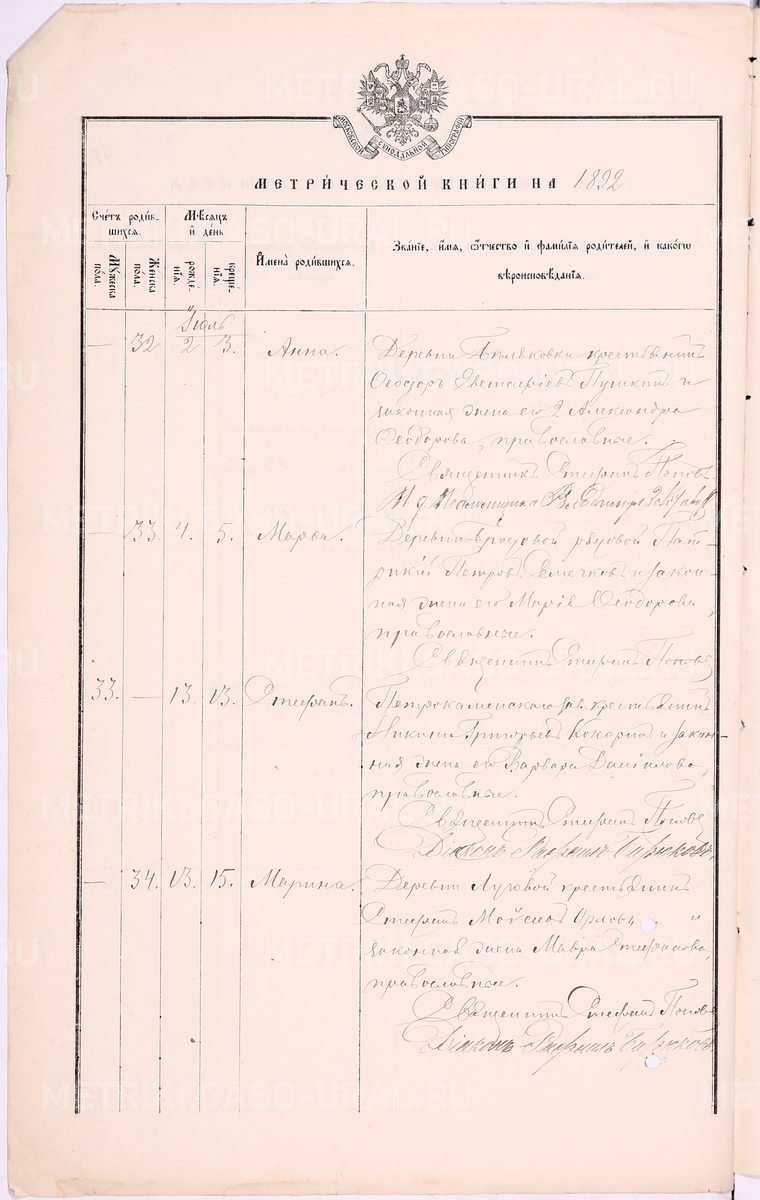 МОСКОВСКОЙ СѴНОДАЛЬНОЙ ТИПОГРАФІИ
МЕТРИ́ЧЕСКОЙ КНИ́ГИ НА 1892
Сче́тъ роди́в-
шихся.
Му́жеска по́ла.
Же́нска по́ла.
Мѣ́сяцъ и҆ де́нь
рожде́-
нїя.
креще́-
нїя.
И҆мена̀ роди́вшихся.
Зва́нїе, и҆́мя, ѻ҆́тчество и҆ фами́лїя роди́телей, и҆ како́гѡ
вѣроисповѣ́данїя.
Іюль
— 32 2 3. Анна. Деревни крестьянинъ
Ѳеодоръ Пушкинъ и
законная жена его 2 Александра
Ѳеодорова, православные.
Священникъ Стефанъ Поповъ
И д Псаломщика
— 33 4. 5. Марѳа. Деревни рядовой Пат-
рикій Петровъ Семечковъ и закон-
ная жена его Марія Ѳеодорова,
православные.
Священникъ Стефанъ Поповъ
33. — 13. 13. Стефанъ. Петрокаменскаго зав. крестьянинъ
Никита Григорьевъ Кокоринъ и закон-
ная жена его Варвара Даніилова,
православные.
Священникъ Стефанъ Поповъ
Діаконъ
— 34. 13. 15. Марина. Деревни Луговой крестьянинъ
Стефанъ Моисеевъ Орловъ и
законная жена Мавра Стефанова,
православные.
Священникъ Стефанъ Поповъ
Діаконъ
METRIKI.GASO-URAL.RU